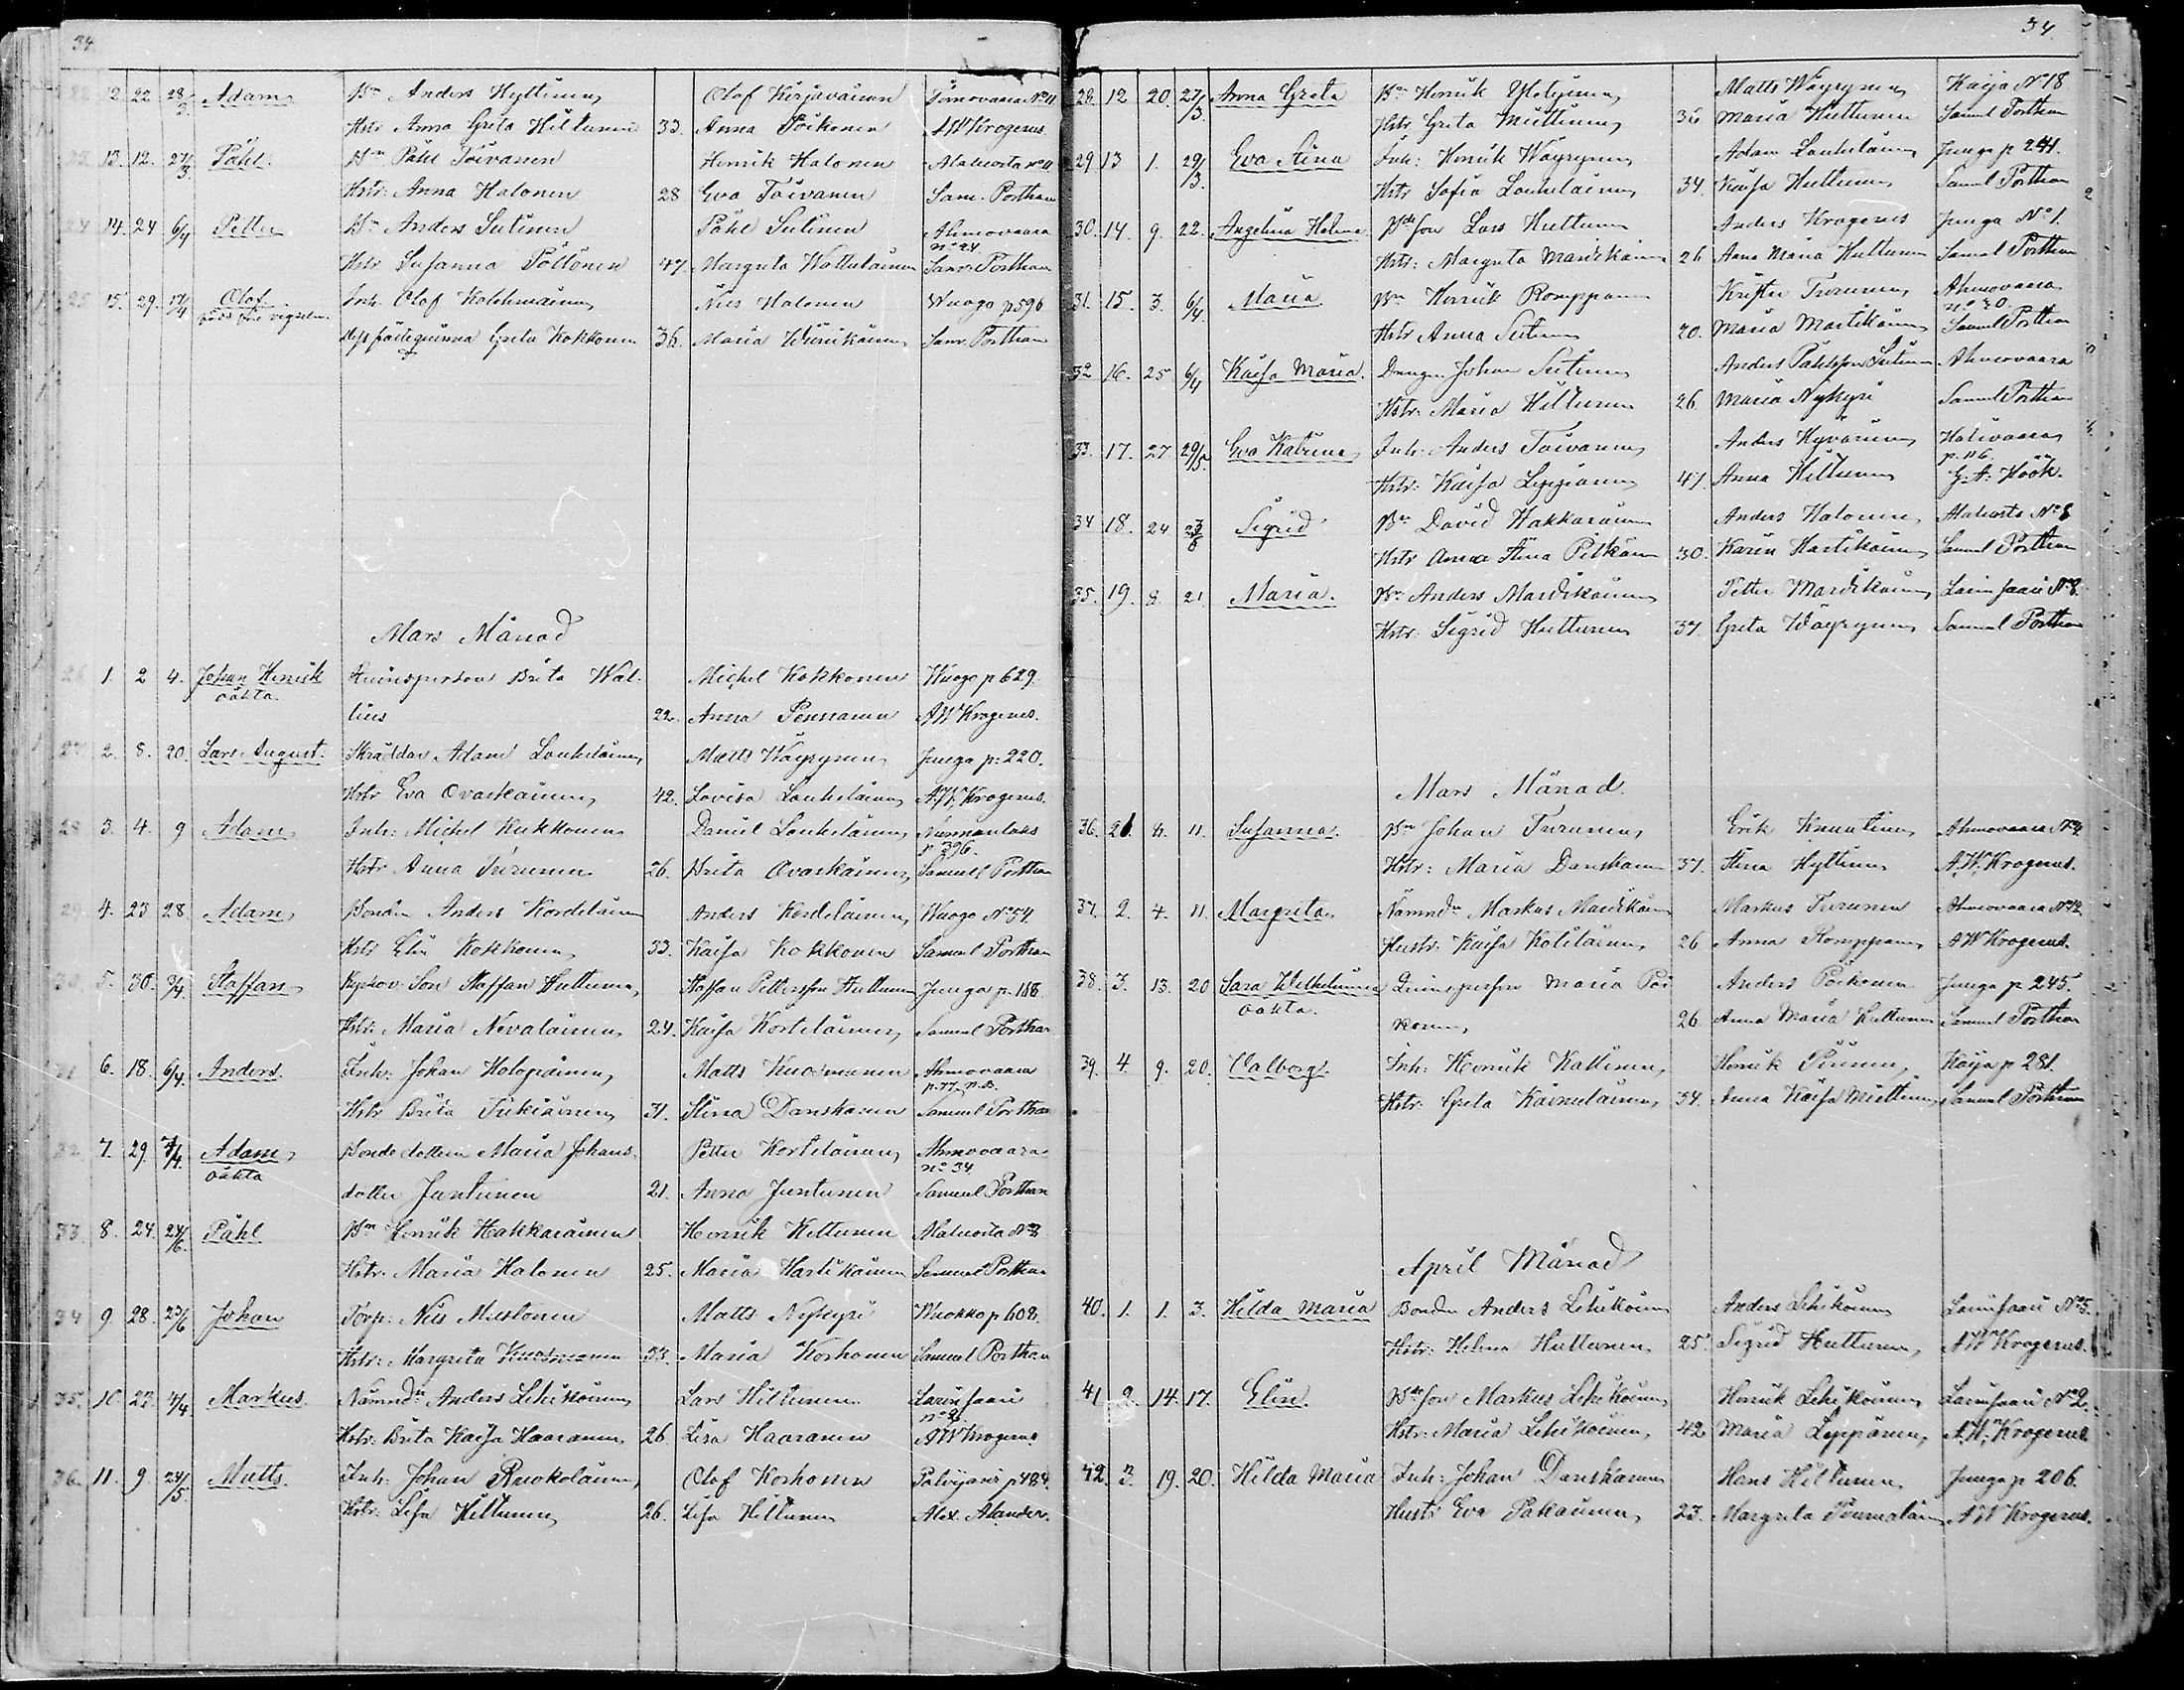 34
12. 22 28/3. Adam Bn Anders Hyttinen Olof Kerjäväinen Timovaara No 11
Hstr Anna Greta Hiltunen 33. Anna Poikonen AW Krogerus.
13. 12. 27/3 Påhl. Bn Påhl Toivanen Henrik Halonen Maluosta No 11
Hstr. Anna Halonen 28 Eva Toivanen Sam. Porthan
24 14. 24 6/4 Petter Bn Anders Sutinen Påhl Sutinen Ahmovaara
no 24
Hstr Susanna Pöllönen 47. Margreta Sam. Porthan
25 15. 29. 17/4 Olof Inh. Olof Kolehmainen Nils Halonen Wuogo p 596
född före vigseln.
Greta Kokkonen 36. Maria Sam. Porthan
Mars Månad
26 1. 2 4. Johan Henrik Qvinsperson Brita Wal- Michel Kokkonen Wuogo p 629.
oäkta.
lius 22. Anna Pennanen AW Krogerus.
27 2. 8. 20. Lars August. Skräddar Adam Louhelainen Matts Wäyrynen Junga p: 220.
Hstr Eva Ovaskainen 42. Lovisa Louhelainen A.W. Krogerus.
28 3. 4. 9 Adam Inh: Michel Kukkonen Daniel Louhelainen
p 396.
Hstr Anna Turunen 26. Brita Ovaskainen Samuel Porthan
29. 4. 23 28. Adam Bonden Anders Kordelainen Anders Kordelainen Wuogo No 54.
Hstr Elin Kokkonen 33. Kaisa Kokkonen Samuel Porthan
30. 5. 30. 3/4. Staffan Son Staffan Huttunen Staffan Pettersson Huttunen Junga p. 188
Hstr: Maria Nevalainen 24. Kaisa Kortelainen Samuel Porthan
31 6. 18. 6/4. Anders. Inh: Johan Holopainen Matts Kuosmanen Ahmovaara
p. 77. n. B.
Hstr Brita 31. Stina Danskanen Samuel Porthan
32 7. 29. 7/4. Adam Bondedottern Maria Johans- Petter Kortelainen Ahmovaara
oäkta no 34
dotter Juntunen 21. Anna Juntunen Samuel Porthan
33. 8. 24. 24/6. Påhl Bn Henrik Hakkarainen Henrik Kettunen Maluosta
Hstr. Maria Halonen 25. Maria Hartikainen Samuel Porthan
34 9. 28. 23/6 Johan Torp: Nils Mustonen Matts Nykyri Wuokko p 608.
Hstr: Margreta Kuosmanen 33. Maria Korhonen Samuel Porthan
35. 10. 23. 4/4. Markus. Nämndn Anders Lehikoinen Lars Hiltunen Larinsaari
Hstr: Brita Kaisa Haaranen 26. Lisa Haaranen AW Krogerus.
36. 11. 9. 24/5. Matts. Inh: Johan Ruokolainen Olof Korhonen Palojärvi p 484.
Hstr. Lisa Hiltunen 26. Lisa Hiltunen Alex. Alander.
34
28. 12 20. 27/3. Anna Greta Bn Henrik Matts Wäyrynen Kaija No 18
Hstr. Greta Miettinen 36 Maria Huttunen Samuel Porthan
29 13 1. 29/3. Eva Stina Inh: Henrik Wäyrynen Adam Louhelainen Junga p 241.
Hstr Sofia Louhelainen 34. Kaisa Huttunen Samuel Porthan
30. 14. 9. 22. Angelina Helena Bdeson Lars Huttunen Anders Krogerus Junga No 1.
Hstr: Margreta Mardikainen 26 Anna Maria Huttunen Samuel Porthan
31. 15. 3. 6/4. Maria Bn Henrik Romppanen Krister Turunen Ahmovaara
no 30.
Hstr Anna Sutinen 20. Maria Martikainen Samuel Porthan
32 16. 25 6/4 Kaisa Maria. Drengen Johan Sutinen Anders Påhlsson Sutinen Ahmovaara
Hstr. Maria Hiltunen 26. Maria Nykyri Samuel Porthan
33. 17. 27 29/5. Eva Katrina Inh. Anders Toivanen Anders Hyvärinen Halivaara
p. 116.
Hstr: Kaisa Leppänen 47. Anna Hiltunen G. A. Höök.
34 18. 24 23/6 Sigrid Bn David Hakkarainen Anders Halonen Maluosta No 8
Hstr Anna Stina Pitkänen 30. Karin Hartikainen Samuel Porthan
35. 19. 8. 21 Maria. Bn Anders Mardikainen Petter Mardikainen Larinsaari No 8.
Hstr. Sigrid Huttunen 37. Greta Wäyrynen Samuel Porthan
Mars Månad.
36. 4. 11. Susanna. Bn Johan Turunen Erik Knuutinen Ahmovaara
Hstr: Maria Danskanen 37. Stina Hyttinen A.W. Krogerus.
37. 2. 4. 11. Margreta. Nämndn Markus Mardikainen Markus Turunen Ahmovaara No 12
Hustr. Kaisa 26 Anna Romppanen AW Krogerus.
38. 3. 13. 20 Sara Wilhelmina Qvinsperson Maria Poi- Anders Poikonen Junga p 245.
oäkta.
konen 26. Anna Maria Huttunen Samuel Porthan
39. 4. 9. 20. Valborg. Inh: Henrik Kallinen Henrik Piirinen Kaija p 281.
Hstr. Greta Kainulainen 34. Anna Kaisa Miettinen Samuel Porthan
April Månad
40. 1. 1. 3. Hilda Maria Bonden Anders Lehikoinen Anders Lehikoinen Larinsaari No 5.
Hstr. Helena Huttunen 25. Sigrid Huttunen AW Krogerus.
41 2. 14. 17. Elin. Bdeson Markus Lehikoinen Henrik Lehikoinen Larinsaari No 2.
Hstr. Maria Lehikoinen 42 Maria Leppänen A.W. Krogerus.
42. 3. 19. 20. Hilda Maria Inh: Johan Danskanen Hans Hiltunen Junga p 206.
Hustr Eva Pakarinen 23. Margreta AW Krogerus.